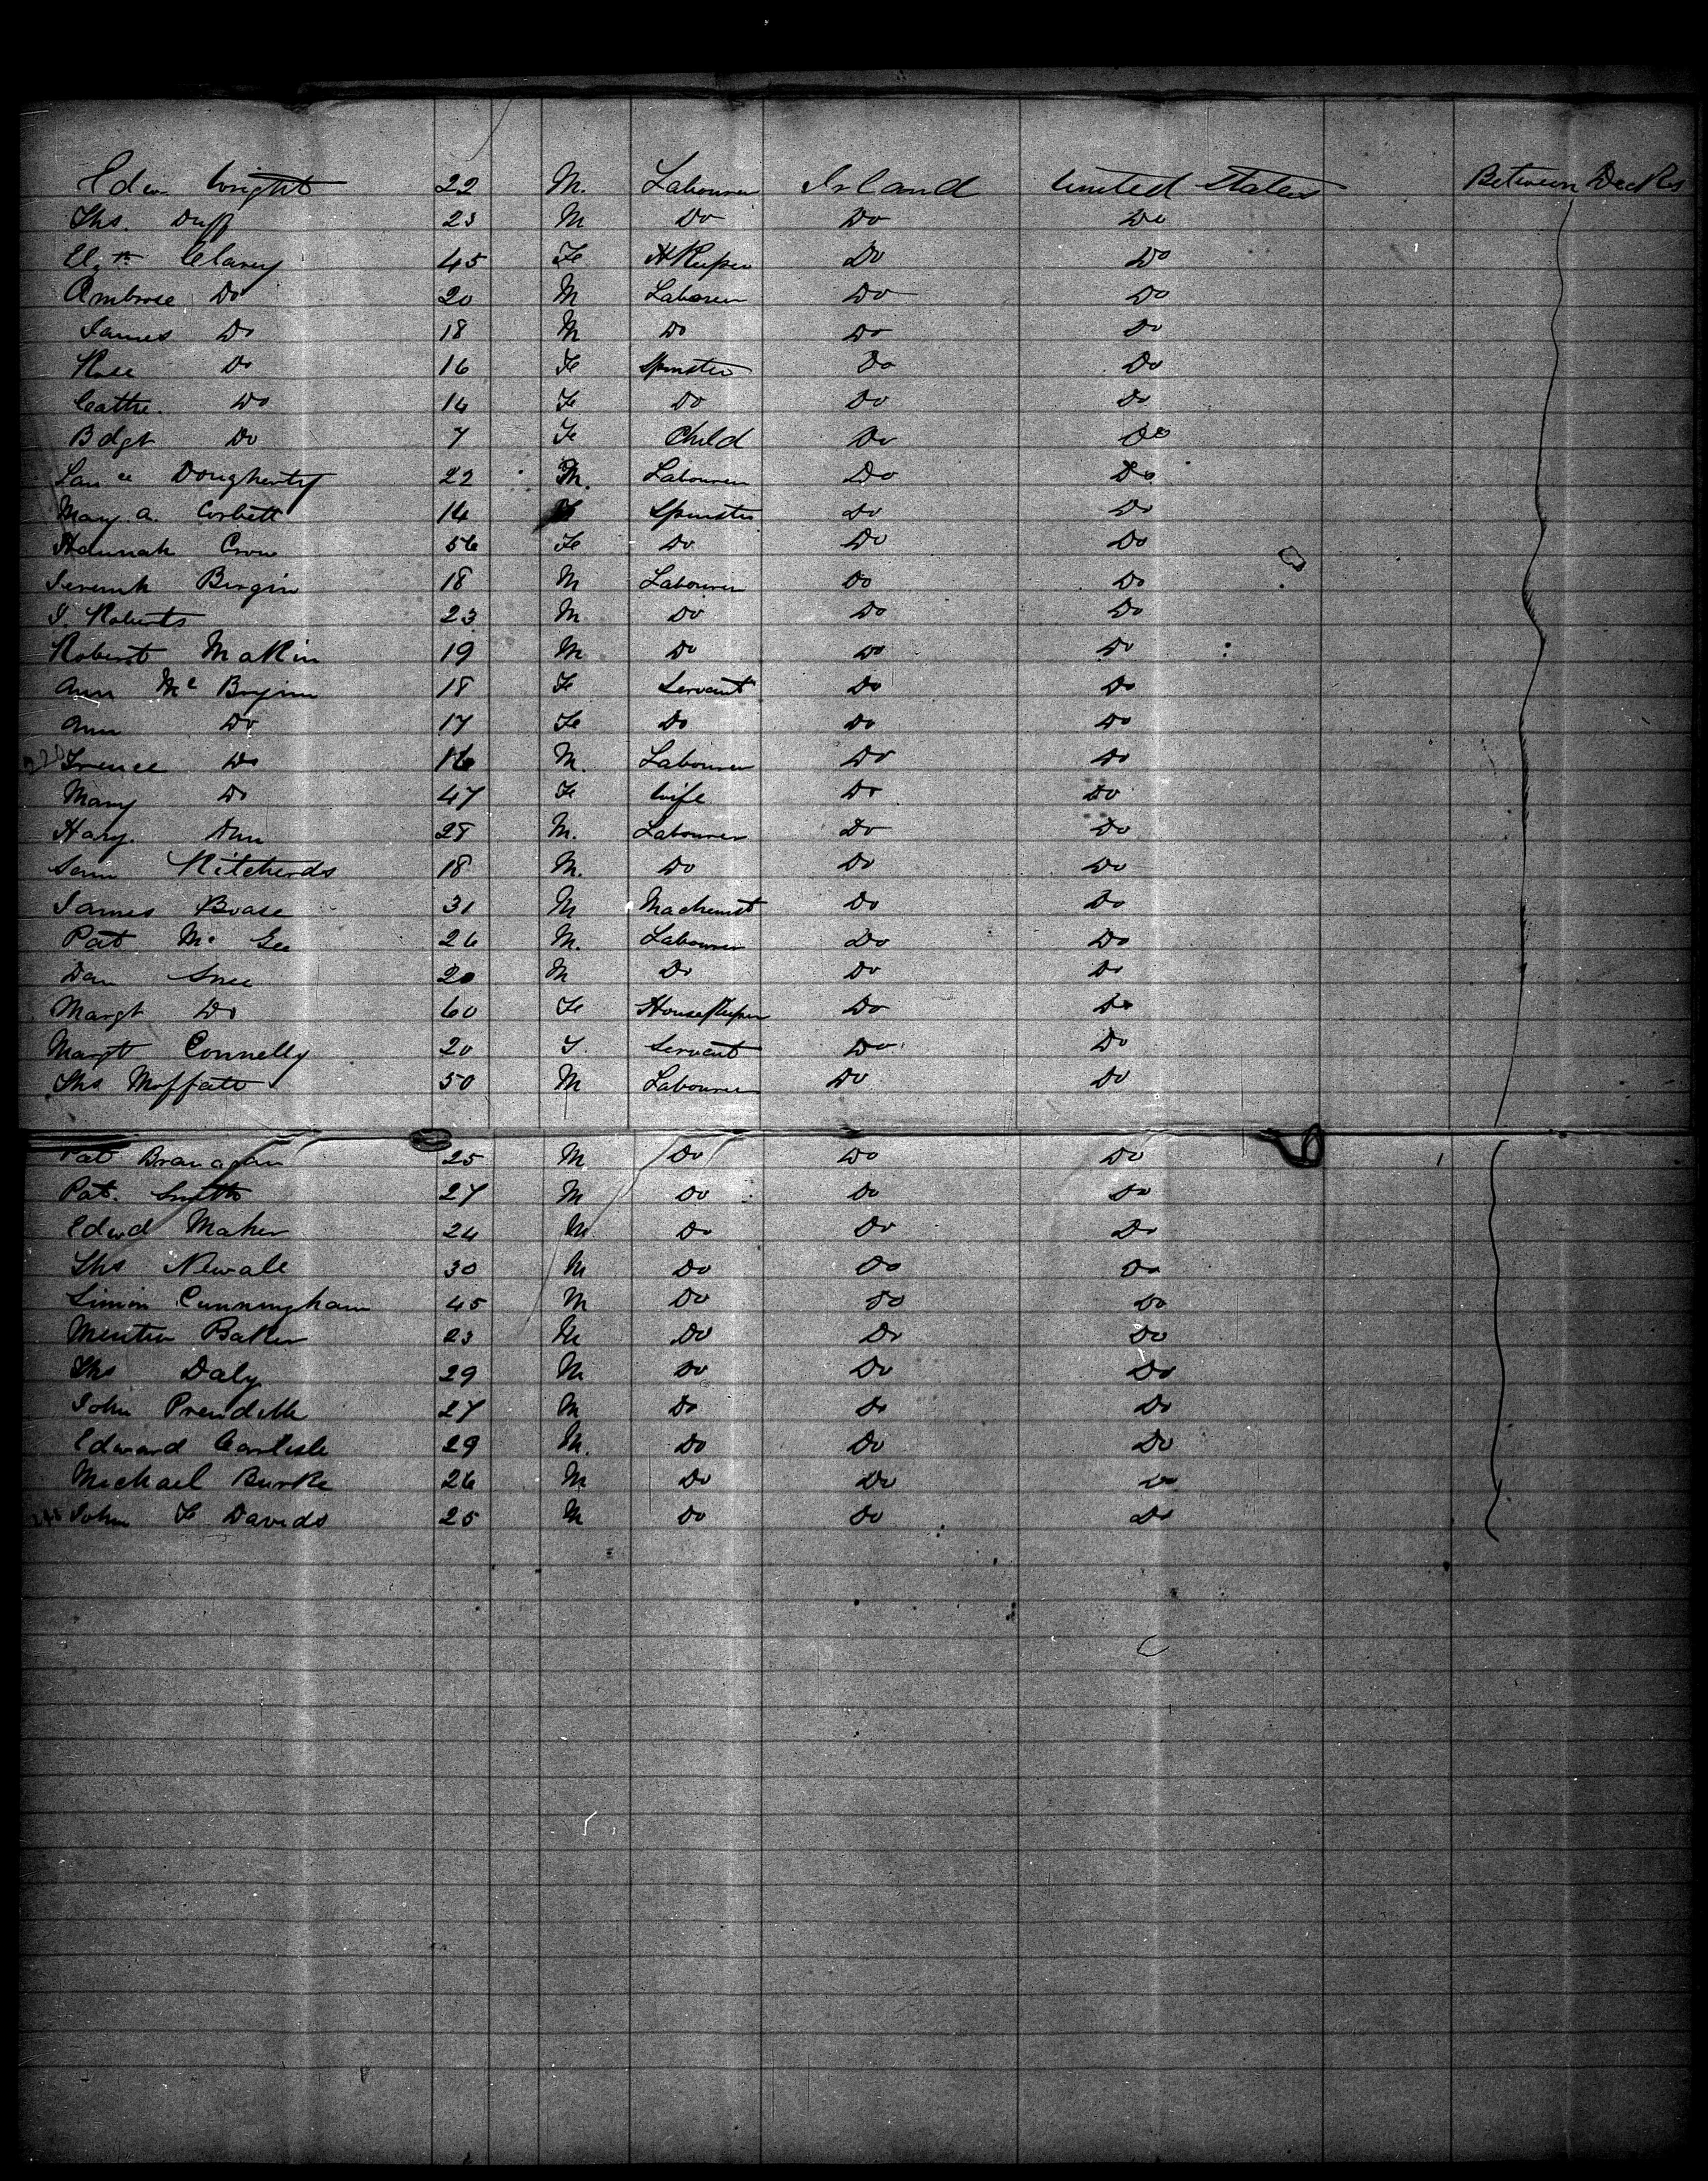 Edw. Wright 22 M. Labourer Irland United States Between Decks
Ths. Duff 23 M Do Do Do
Elzth Clarey 45 Fe HKeeper Do Do
Ambrose Do 20 M Laborer Do Do
James Do 18 M Do Do Do
Rose Do 16 Fe Spinster Do Do
Cathe. Do 14 Fe Do Do Do
Bdgt Do 7 Fe Child Do Do
Lance Dougherty 22 M. Labourer Do Do
Mary. A. Corbett 14 Spinster Do Do
Hannah Crow 56 Fe Do Do Do
Jeremh Bergin 18 M Labourer Do Do
J. Roberts 23 M. Do Do Do
Robert Makin 19 M Do Do Do
Ann Mc 18 Fe Servant Do Do
Ann Do 17 Fe Do Do Do
Do 16 M. Labourer Do Do
Mary Do 47 Fe Wife Do Do
Hary. 28 M. Labourer Do Do
Ritcherds 18 M. Do Do Do
James Boase 31 M Machenist Do Do
Pat Mc Gee 26 M. Labourer Do Do
Dan Snee 20 M Do Do Do
Margt Do 60 Fe HouseKeeper Do Do
Margt Connelly 20 F. Servant Do Do
Ths Moffatt 50 M Labourer Do Do
Pat Branagan 25 M Do Do Do
Pat. Smith 27 M Do Do Do
Edwd Maher 24 M. Do Do Do
Ths Newall 30 M Do Do Do
Simon Cunningham 45 M Do Do Do
Baker 23 M Do Do Do
Ths Daly 29 M Do Do Do
John 27 M Do Do Do
Edward Carlisle 29 M. Do Do Do
Michael Burke 26 M Do Do Do
John F Davids 25 M Do Do Do